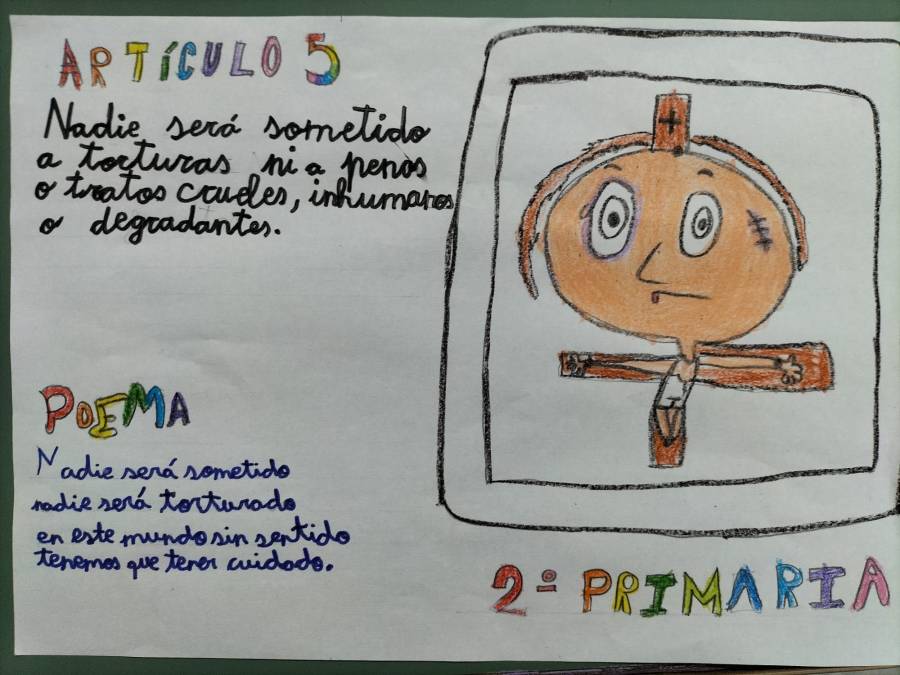 ARTÍCULO 5
Nadie será sometido
a torturas ni a penas
o tratos crueles, inhumanos
o degradantes.
POEMA
Nadie será sometido
nadie será torturado
en este mundo sin sentido
tenemos que tener cuidado.
2º PRIMARIA